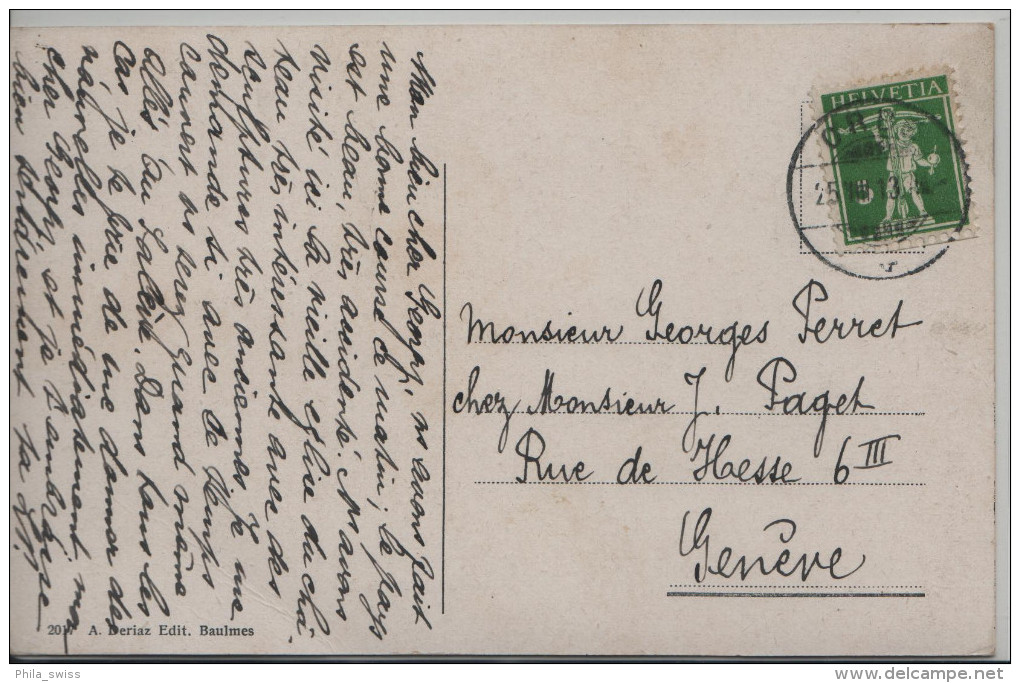 Mon bien cher Georges, ns avons fait
une bonne course ce matin, le pays
est beau, très accidenté. Ns avons
visité ici la vieille église du châ-
teau très intéressante avec des
sculptures très anciennes. Je me
demande si avec ce temps
couvert vs serez quand même
allés au Salève. Dans tous les
cas, je te prie de me donner de
nouvelles immédiatement, mon
cher Georges, et je t'embrasse
bien tendrement ta
HELVETIA
5
ORBE
25.VIII.13.
Monsieur Georges Perret
chez Monsieur J. Paget
Rue de Hesse 6 III
Genève
2017 A. Deriaz Edit. Baulmes
Phila_swiss
delcampe.net